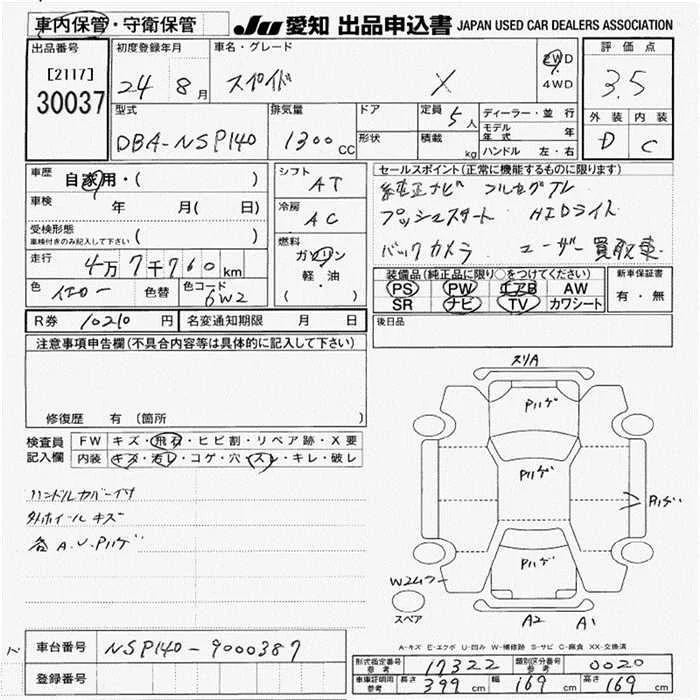 車内保管・守衛保管
JU 愛知 出品申込書 JAPAN USED CAR DEALERS ASSOCIATION
出品番号
[2117]
30037
初度登録年月
24 8月
車名・グレード
スペイド X
2WD
4WD
評価点
3.5
外装 内装
D C
型式
DBA-NSP140
排気量
1300CC
ドア
形状
定員 5人
積載 kg
ディーラー・並行
モデル年式 年
ハンドル 左・右
車歴 自家用・( )
車検 年 月(日)
受検形態
車検付きのみ記入して下さい ( )
走行 4万7千760km
色 イエロー 色替 色コード 6W2
シフト AT
冷房 AC
燃料
ガソリン
軽・油
( )
セールスポイント(正常に機能するものに限ります)
純正ナビ フルセグTV
プッシュスタート HIDライト
バックカメラ ユーザー買取車
装備品(純正品に限り○をつけてください)
PS PW エアB AW
SR ナビ TV カワシート
新車保証書
有・無
後日品
R券 10210円 名変通知期限 月 日
注意事項申告欄(不具合内容等は具体的に記入して下さい)
修復歴 有 〔箇所 〕
検査員記入欄
FW キズ・飛石・ヒビ割・リペア跡・X要
内装 キズ・汚レ・コゲ・穴・スレ・キレ・破レ
ハンドルカバー付
外ホイールキズ
各A.U.Pハゲ
スリA
Pハゲ
Pハゲ
Pハゲ
Pハゲ
スペア
A2 A1
A-キズ E-エクボ U-凹み W-補修跡 S-サビ C-腐食 XX-交換済
車台番号 NSP140-9000387
登録番号
形式指定番号 参考 17322 類別区分番号 参考 0020
車庫証明用 参考 長さ 399cm 幅 169cm 高さ 169cm